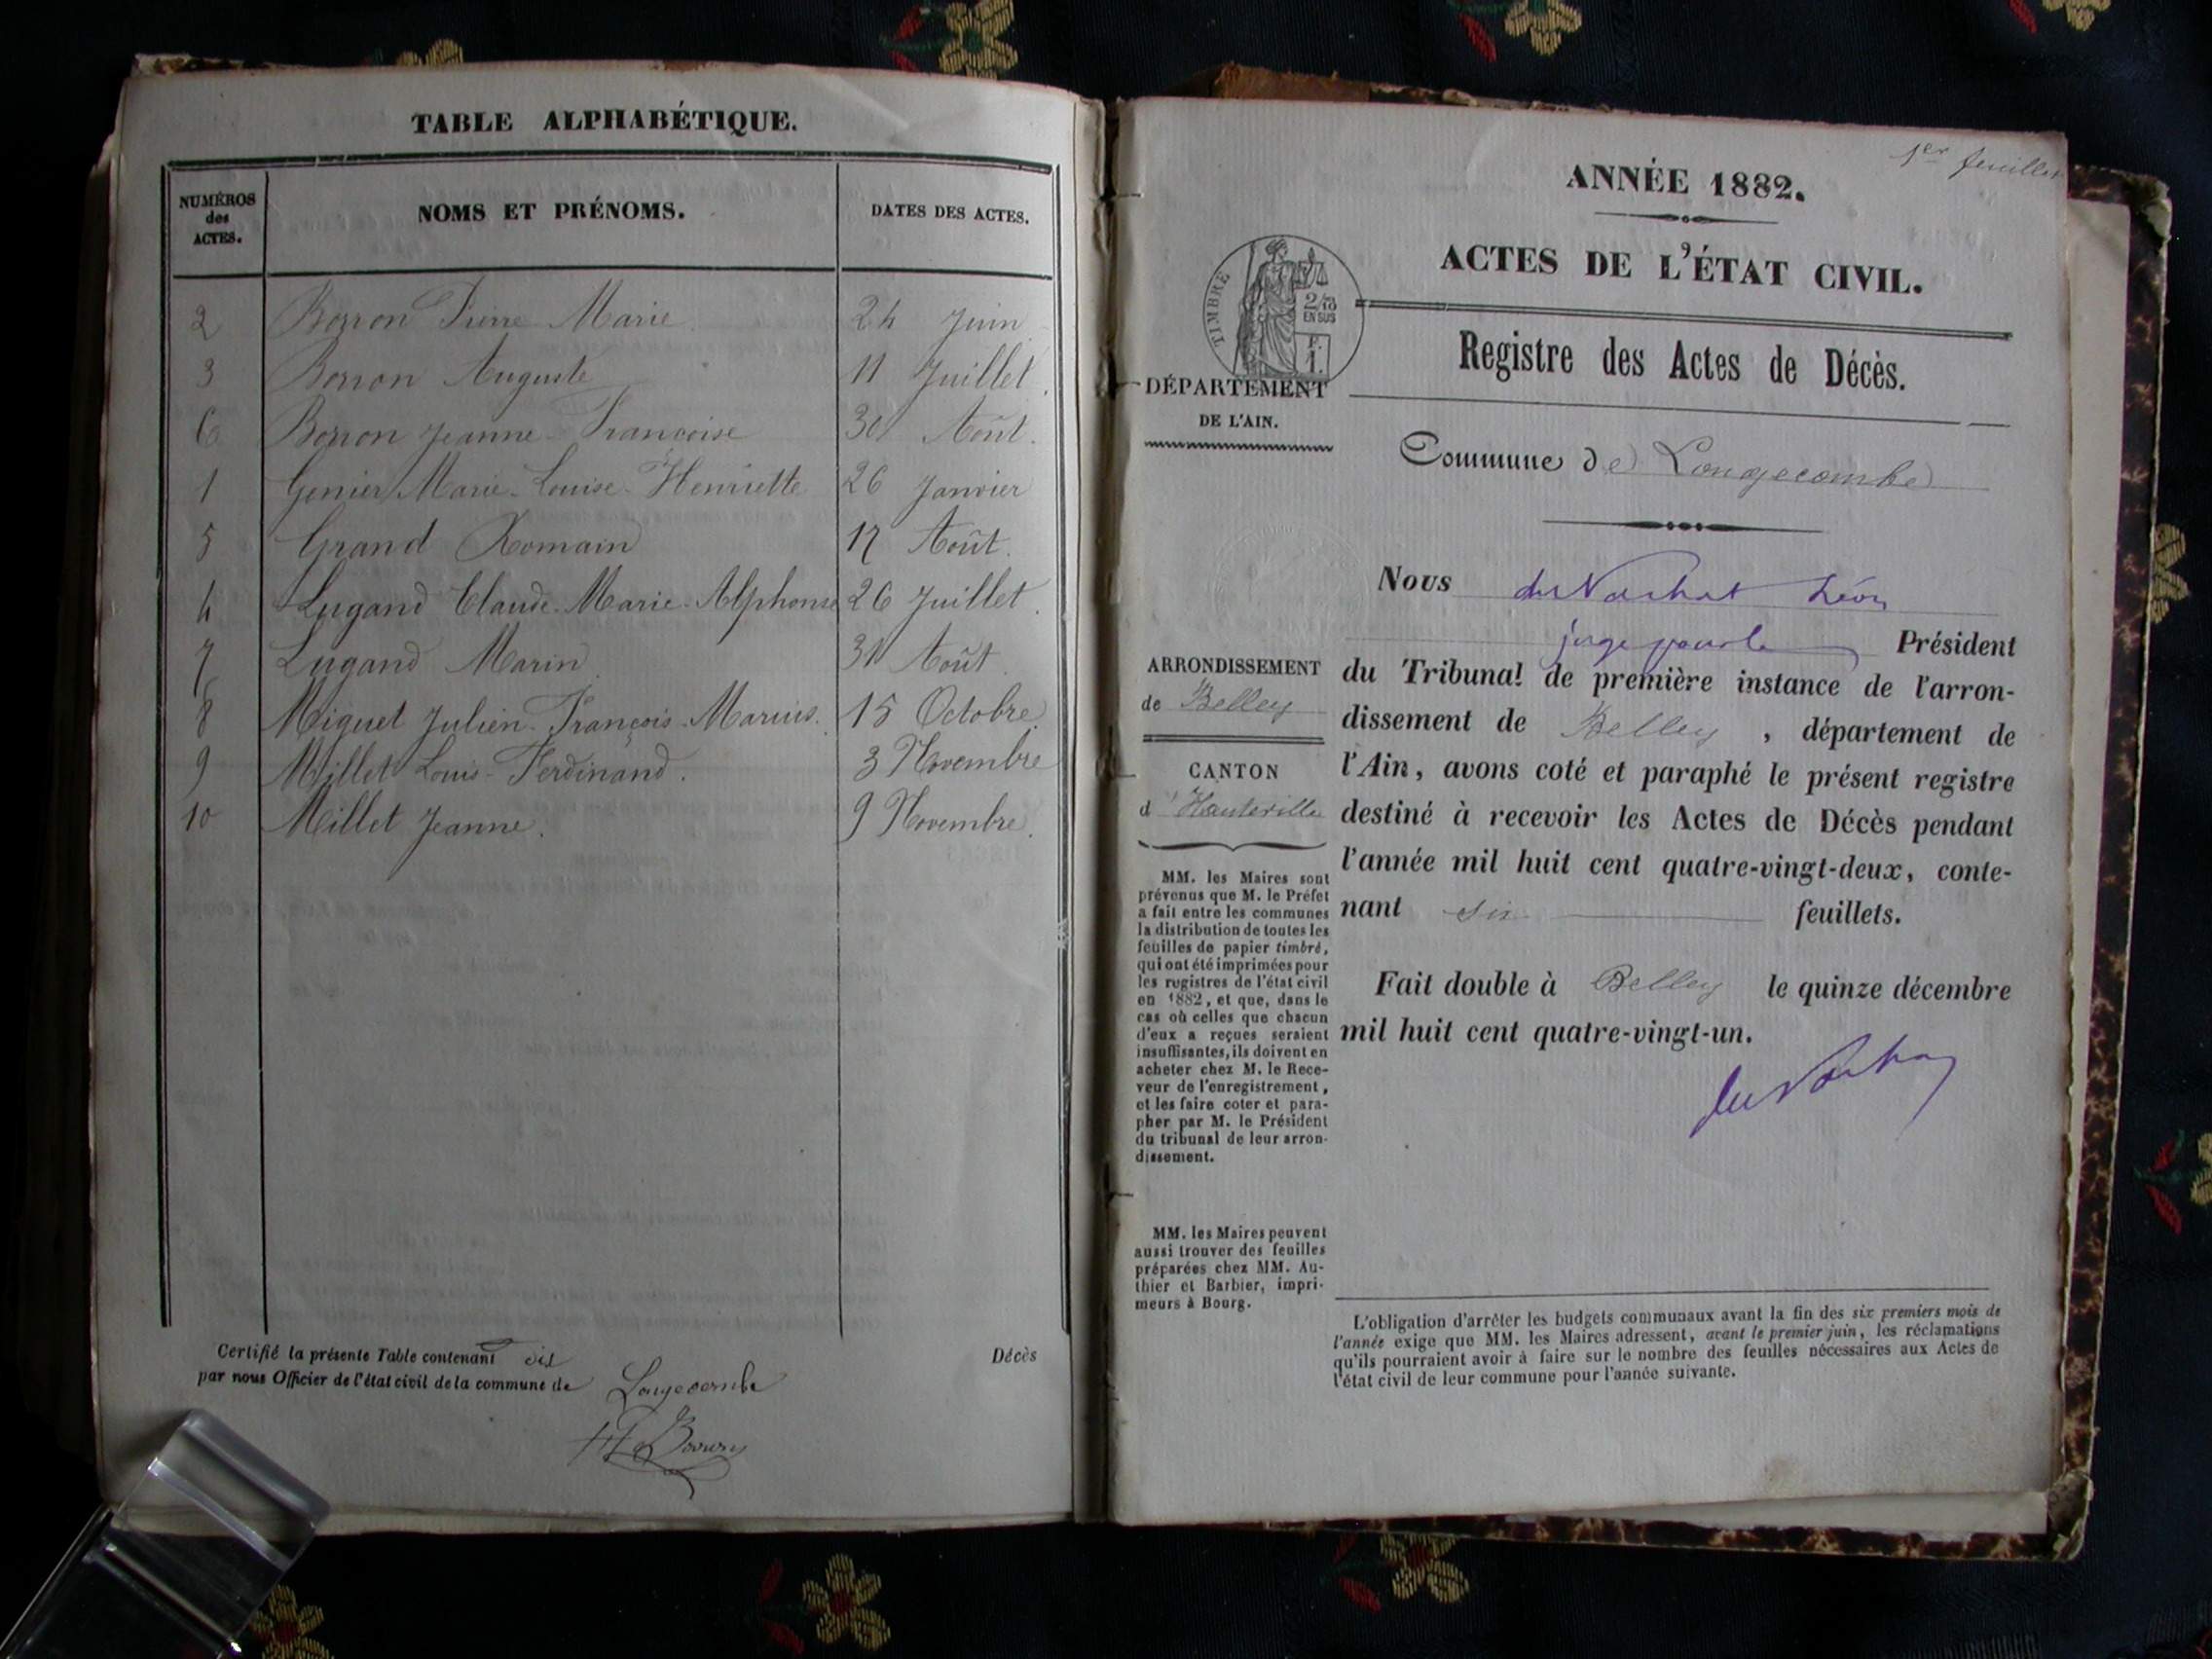 TABLE ALPHABÉTIQUE.
NUMÉROS des ACTES. NOMS ET PRÉNOMS. DATES DES ACTES.
2 Borron Pierre Marie 24 Juin
3 Borron Auguste 11 Juillet.
6 Borron Jeanne-Françoise 30 Août.
1 Genier Marie-Louise-Henriette 26 Janvier
5 Grand Romain 17 Août.
4 Lugand Claude-Marie-Alphonse 26 Juillet.
7 Lugand Marin 31 Août.
8 Miguet Julien-François-Marius. 15 Octobre.
9 Millet Louis-Ferdinand. 3 Novembre
10 Millet Jeanne. 9 Novembre.
Certifié la présente Table contenant dix Décès
par nous Officier de l'état civil de la commune de Longecombe
1er feuillet
ANNÉE 1882.
ACTES DE L'ÉTAT CIVIL.
TIMBRE
2/10
EN SUS
1.
Registre des Actes de Décès.
DÉPARTEMENT
DE L'AIN.
Commune de Longecombe
Nous Léon
juge pour le Président
du Tribunal de première instance de l'arron-
dissement de Belley, département de
l'Ain, avons coté et paraphé le présent registre
destiné à recevoir les Actes de Décès pendant
l'année mil huit cent quatre-vingt-deux, conte-
nant six feuillets.
Fait double à Belley le quinze décembre
mil huit cent quatre-vingt-un.
ARRONDISSEMENT
de Belley
CANTON
d'Hauteville
MM. les Maires sont
prévenus que M. le Préfet
a fait entre les communes
la distribution de toutes les
feuilles de papier timbré,
qui ont été imprimées pour
les registres de l'état civil
en 1882, et que, dans le
cas où celles que chacun
d'eux a reçues seraient
insuffisantes, ils doivent en
acheter chez M. le Rece-
veur de l'enregistrement,
et les faire coter et para-
pher par M. le Président
du tribunal de leur arron-
dissement.
MM. les Maires peuvent
aussi trouver des feuilles
préparées chez MM. Au-
thier et Barbier, impri-
meurs à Bourg.
L'obligation d'arrêter les budgets communaux avant la fin des six premiers mois de
l'année exige que MM. les Maires adressent, avant le premier juin, les réclamations
qu'ils pourraient avoir à faire sur le nombre des feuilles nécessaires aux Actes de
l'état civil de leur commune pour l'année suivante.